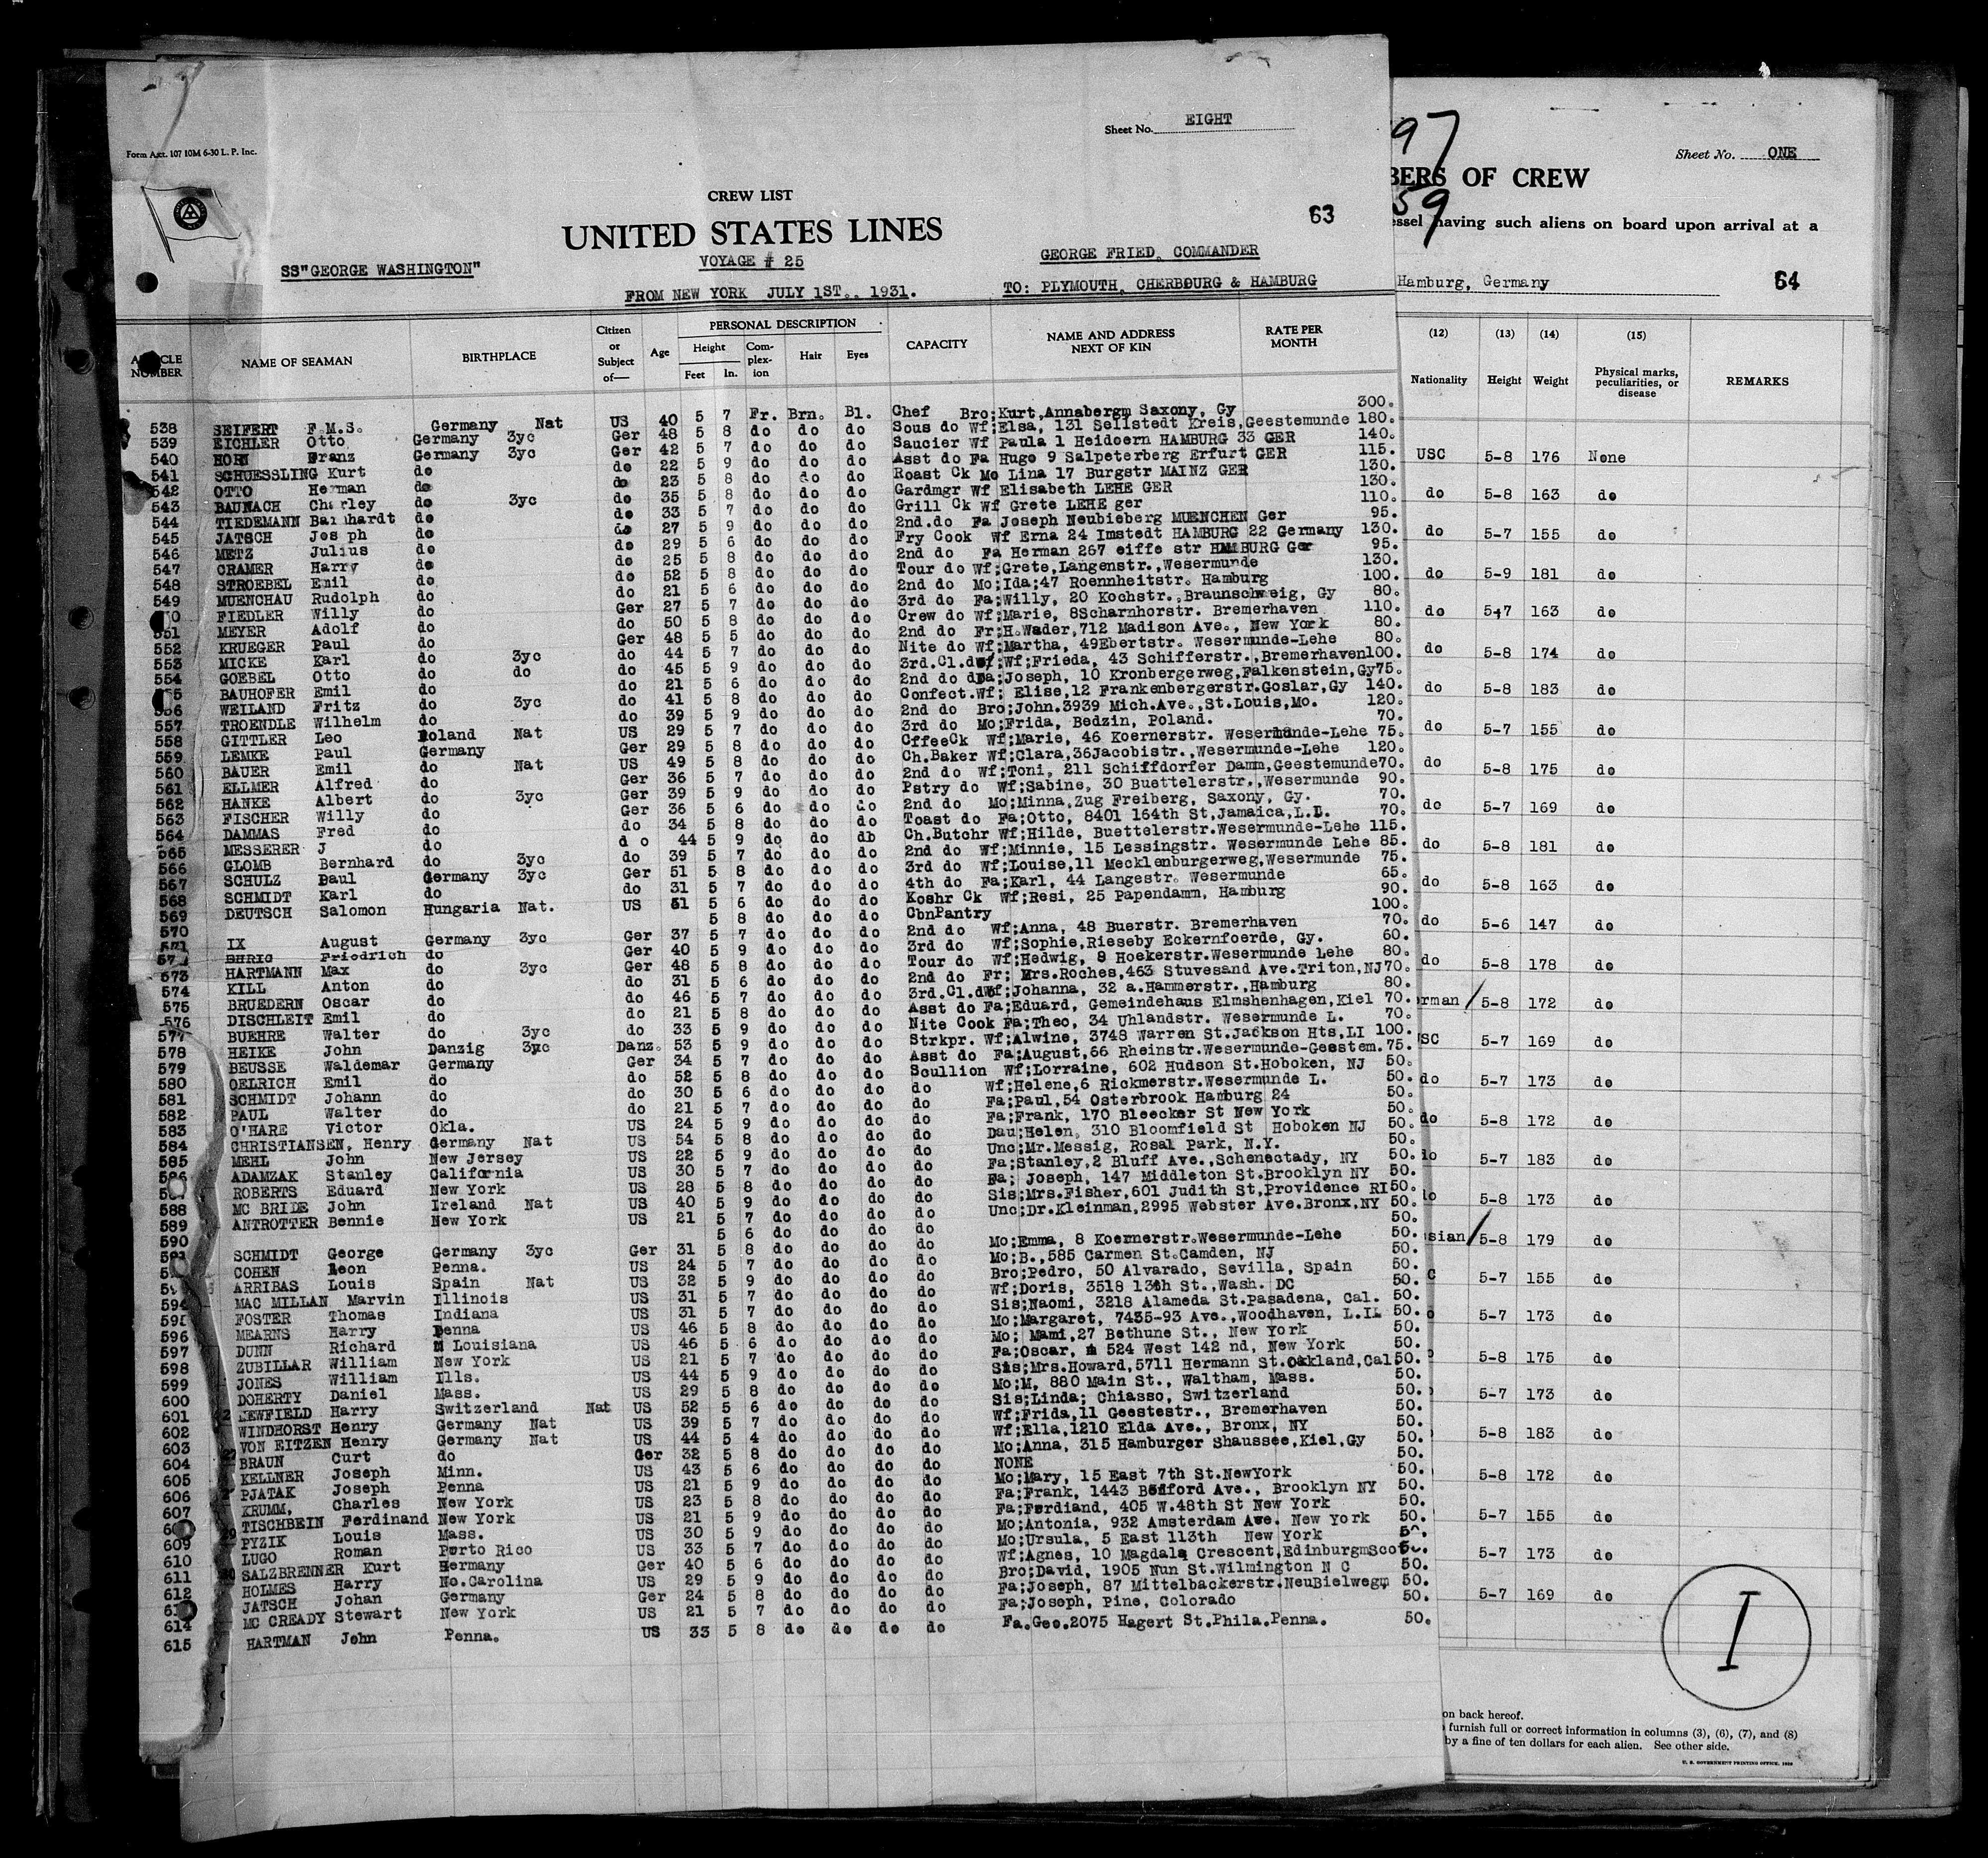 Sheet No. EIGHT
Form Act. 107 10M 6-30 L. P. Inc.
CREW LIST
UNITED STATES LINES
63
SS"GEORGE WASHINGTON"
VOYAGE # 25
GEORGE FRIED. COMMANDER
FROM NEW YORK JULY 1ST.. 1931.
TO: PLYMOUTH, CHERBOURG & HAMBURG
NUMBER
NAME OF SEAMAN
BIRTHPLACE
Citizen or Subject of—
Age
PERSONAL DESCRIPTION
Height
Feet In.
Complexion
Hair
Eyes
CAPACITY
NAME AND ADDRESS NEXT OF KIN
RATE PER MONTH
538 SEIFERT F.M.S. Germany Nat US 40 5 7 Fr. Brn. Bl. Chef Bro;Kurt,Annabergm Saxony, Gy 300.
539 EICHLER Otto Germany 3yc Ger 48 5 8 do do do Sous do Wf;Elsa, 131 Sellstedt Kreis,Geestemunde 180.
540 HORN Franz Germany 3yc Ger 42 5 7 do do do Saucier Wf Paula 1 Heidoern HAMBURG 33 GER 140.
541 SCHUESSLING Kurt do do 22 5 9 do do do Asst do Fa Hugo 9 Salpeterberg Erfurt GER 115.
542 OTTO Herman do do 23 5 8 do do do Roast Ck Mo Lina 17 Burgstr MAINZ GER 130.
543 BAUNACH Charley do 3yc do 35 5 8 do do do Gardmgr Wf Elisabeth LEHE GER 130.
544 TIEDEMANN Barnhardt do do 33 5 7 do do do Grill Ck Wf Grete LEHE ger 110.
545 JATSCH Joseph do do 27 5 9 do do do 2nd.do Fa Joseph Neubieberg MUENCHEN Ger 95.
546 METZ Julius do do 29 5 6 do do do Fry Cook Wf Erna 24 Imstedt HAMBURG 22 Germany 130.
547 CRAMER Harry do do 25 5 8 do do do 2nd do Fa Herman 267 eiffe str HAMBURG Ger 95.
548 STROEBEL Emil do do 52 5 8 do do do Tour do Wf;Grete,Langenstr.,Wesermunde 130.
549 MUENCHAU Rudolph do do 21 5 6 do do do 2nd do Mo;Ida;47 Roennheitstr. Hamburg 100.
0 FIEDLER Willy do Ger 27 5 7 do do do 3rd do Fa;Willy, 20 Kochstr.,Braunschweig, Gy 80.
551 MEYER Adolf do do 50 5 8 do do do Crew do Wf;Marie, 8Scharnhorstr. Bremerhaven 110.
552 KRUEGER Paul do Ger 48 5 5 do do do 2nd do Fr;H.Wader,712 Madison Ave., New York 80.
553 MICKE Karl do 3yc do 44 5 7 do do do Nite do Wf;Martha, 49Ebertstr. Wesermunde-Lehe 80.
554 GOEBEL Otto do do do 45 5 9 do do do 3rd.Cl.do Wf;Frieda, 43 Schifferstr.,Bremerhaven100.
555 BAUHOFER Emil do do 21 5 6 do do do 2nd do Fa;Joseph, 10 Kronbergerweg,Falkenstein,Gy75.
556 WEILAND Fritz do 3yc do 41 5 8 do do do Confect.Wf; Elise,12 Frankenbergerstr.Goslar,Gy 140.
557 TROENDLE Wilhelm do do 39 5 9 do do do 2nd do Bro;John.3939 Mich.Ave.,St.Louis,Mo. 120.
558 GITTLER Leo Poland Nat US 29 5 7 do do do 3rd do Mo;Frida, Bedzin, Poland. 70.
559 LEMKE Paul Germany Ger 29 5 8 do do do CffeeCk Wf;Marie, 46 Koernerstr. Wesermunde-Lehe 75.
560 BAUER Emil do Nat US 49 5 8 do do do Ch.Baker Wf;Clara,36Jacobistr.,Wesermunde-Lehe 120.
561 ELLMER Alfred do Ger 36 5 7 do do do 2nd do Wf;Toni, 211 Schiffdorfer Damm,Geestemunde70.
562 HANKE Albert do 3yc Ger 39 5 9 do do do Pstry do Wf;Sabine, 30 Buettelerstr.,Wesermunde 90.
563 FISCHER Willy do Ger 36 5 6 do do do 2nd do Mo;Minna,Zug Freiberg, Saxony, Gy. 70.
564 DAMMAS Fred do do 34 5 8 do do do Toast do Fa;Otto, 8401 164th St,Jamaica,L.I. 70.
565 MESSERER J do d o 44 5 9 do do db Ch.Butchr Wf;Hilde, Buettelerstr.Wesermunde-Lehe 115.
566 GLOMB Bernhard do 3yc do 39 5 7 do do do 2nd do Wf;Minnie, 15 Lessingstr. Wesermunde Lehe 85.
567 SCHULZ Paul Germany 3yc Ger 51 5 8 do do do 3rd do Wf;Louise,11 Mecklenburgerweg,Wesermunde 75.
568 SCHMIDT Karl do do 31 5 7 do do do 4th do Fa;Karl, 44 Langestr. Wesermunde 65.
569 DEUTSCH Salomon Hungaria Nat. US 51 5 6 do do do Koshr Ck Wf;Resi, 25 Papendamm, Hamburg 90.
570 5 8 do do do CbnPantry 100.
571 IX August Germany 3yc Ger 37 5 7 do do do 2nd do Wf;Anna, 48 Buerstr. Bremerhaven 70.
57 EHRIG Friedrich do Ger 40 5 9 do do do 3rd do Wf;Sophie,Rieseby Eckernfoerde, Gy. 60.
573 HARTMANN Max do 3yc Ger 48 5 8 do do do Tour do Wf;Hedwig, 8 Hoekerstr.Wesermunde Lehe 80.
574 KILL Anton do do 31 5 6 do do do 2nd do Fr; Mrs.Roches,463 Stuvesand Ave.Triton,NJ70.
575 BRUEDERN Oscar do do 46 5 7 do do do 3rd.Cl.do Wf;Johanna, 32 a.Hammerstr.,Hamburg 80.
576 DISCHLEIT Emil do do 21 5 8 do do do Asst do Fa;Eduard, Gemeindehaus Elmshenhagen,Kiel 70.
577 BUEHRE Walter do 3yc do 33 5 9 do do do Nite Cook Fa;Theo, 34 Uhlandstr. Wesermunde L. 70.
578 HEIKE John Danzig 3yc Danz. 53 5 9 do do do Strkpr. Wf;Alwine, 3748 Warren St.Jackson Hts,LI 100.
579 BEUSSE Waldemar Germany Ger 34 5 7 do do do Asst do Fa;August,66 Rheinstr.Wesermunde-Geestem. 75.
580 OELRICH Emil do do 52 5 8 do do do Scullion Wf;Lorraine, 602 Hudson St.Hoboken, NJ 50.
581 SCHMIDT Johann do do 30 5 6 do do do do Wf;Helene,6 Rickmerstr.Wesermunde L. 50.
582 PAUL Walter do do 21 5 7 do do do do Fa;Paul,54 Osterbrook Hamburg 24 50.
583 O'HARE Victor Okla. US 24 5 9 do do do do Fa;Frank, 170 Bleecker St New York 50.
584 CHRISTIANSEN, Henry Germany Nat US 54 5 8 do do do do Dau;Helen, 310 Bloomfield St Hoboken NJ 50.
585 MEHL John New Jersey US 22 5 9 do do do do Unc;Mr.Messig, Rosal Park, N.Y. 50.
586 ADAMZAK Stanley California US 30 5 7 do do do do Fa;Stanley,2 Bluff Ave.,Schenectady, NY 50.
58 ROBERTS Eduard New York US 28 5 8 do do do do Fa; Joseph, 147 Middleton St.Brooklyn NY 50.
588 MC BRIDE John Ireland Nat US 40 5 9 do do do do Sis;Mrs.Fisher,601 Judith St,Providence RI50.
589 ANTROTTER Bennie New York US 21 5 7 do do do do Unc;Dr.Kleinman,2995 Webster Ave.Bronx,NY 50.
590 5 6 do do do do 50.
591 SCHMIDT George Germany 3yc Ger 31 5 8 do do do do Mo;Emma, 8 Koernerstr.Wesermunde-Lehe 50.
59 COHEN Leon Penna. US 24 5 7 do do do do Mo;B.,585 Carmen St.Camden, NJ 50.
59 ARRIBAS Louis Spain Nat US 32 5 9 do do do do Bro;Pedro, 50 Alvarado, Sevilla, Spain 50.
594 MAC MILLAN Marvin Illinois US 31 5 7 do do do do Wf;Doris, 3518 13th St.,Wash. DC 50.
595 FOSTER Thomas Indiana US 31 5 7 do do do do Sis;Naomi, 3218 Alameda St.Pasadena, Cal. 50.
596 MEARNS Harry Penna US 46 5 8 do do do do Mo;Margaret, 7435-93 Ave.,Woodhaven, L.I. 50.
597 DUNN Richard Louisiana US 46 5 6 do do do do Mo; Mami,27 Bethune St., New York 50.
598 ZUBILLAR William New York US 21 5 7 do do do do Fa;Oscar, 524 West 142 nd, New York 50.
599 JONES William Ills. US 44 5 9 do do do do Sis;Mrs.Howard,5711 Hermann St.Oakland,Cal50.
600 DOHERTY Daniel Mass. US 29 5 8 do do do do Mo;M, 880 Main St., Waltham, Mass. 50.
601 NEWFIELD Harry Switzerland Nat US 52 5 6 do do do do Sis;Linda; Chiasso, Switzerland 50.
602 WINDHORST Henry Germany Nat US 39 5 7 do do do do Wf;Frida,11 Geestestr., Bremerhaven 50.
603 VON EITZEN Henry Germany Nat US 44 5 4 do do do do Wf;Ella,1210 Elda Ave., Bronx, NY 50.
604 BRAUN Curt do Ger 32 5 8 do do do do Mo;Anna, 315 Hamburger Shaussee,Kiel,Gy 50.
605 KELLNER Joseph Minn. US 43 5 6 do do do do NONE 50.
606 PJATAK Joseph Penna US 21 5 9 do do do do Mo;Mary, 15 East 7th St.NewYork 50.
607 KRUMM, Charles New York US 23 5 8 do do do do Fa;Frank, 1443 Bedford Ave., Brooklyn NY 50.
60 TISCHBEIN Ferdinand New York US 21 5 9 do do do do Fa;Ferdiand, 405 W.48th St New York 50.
609 PYZIK Louis Mass. US 30 5 9 do do do do Mo;Antonia, 932 Amsterdam Ave. New York 50.
610 LUGO Roman Porto Rico US 33 5 7 do do do do Mo;Ursula, 5 East 113th New York 50.
611 SALZBRENNER Kurt Germany Ger 40 5 6 do do do do Wf;Agnes, 10 Magdala Crescent,EdinburgmScot
612 HOLMES Harry No.Carolina US 29 5 9 do do do do Bro;David, 1905 Nun St.Wilmington N C 50.
61 JATSCH Johan Germany Ger 24 5 8 do do do do Fa;Joseph, 87 Mittelbackerstr.NeuBielwegm 50.
614 MC CREADY Stewart New York US 21 5 7 do do do do Fa;Joseph, Pine, Colorado 50.
615 HARTMAN John Penna. US 33 5 8 do do do do Fa.Geo.2075 Hagert St.Phila.Penna. 50.
97
59
Sheet No. ONE
BERS OF CREW
essel having such aliens on board upon arrival at a
Hamburg, Germany
64
(12) (13) (14) (15)
Nationality Height Weight Physical marks, peculiarities, or disease REMARKS
USC 5-8 176 None
do 5-8 163 do
do 5-7 155 do
do 5-9 181 do
do 5-7 163 do
do 5-8 174 do
do 5-8 183 do
do 5-7 155 do
do 5-8 175 do
do 5-7 169 do
do 5-8 181 do
do 5-8 163 do
do 5-6 147 do
do 5-8 178 do
rman / 5-8 172 do
SC 5-7 169 do
do 5-7 173 do
do 5-8 172 do
do 5-7 183 do
do 5-8 173 do
sian / 5-8 179 do
C 5-7 155 do
5-7 173 do
5-8 175 do
5-7 173 do
5-8 183 do
5-8 172 do
5-7 155 do
5-7 173 do
5-7 169 do
I
on back hereof.
furnish full or correct information in columns (3), (6), (7), and (8)
by a fine of ten dollars for each alien. See other side.
U. S. GOVERNMENT PRINTING OFFICE.